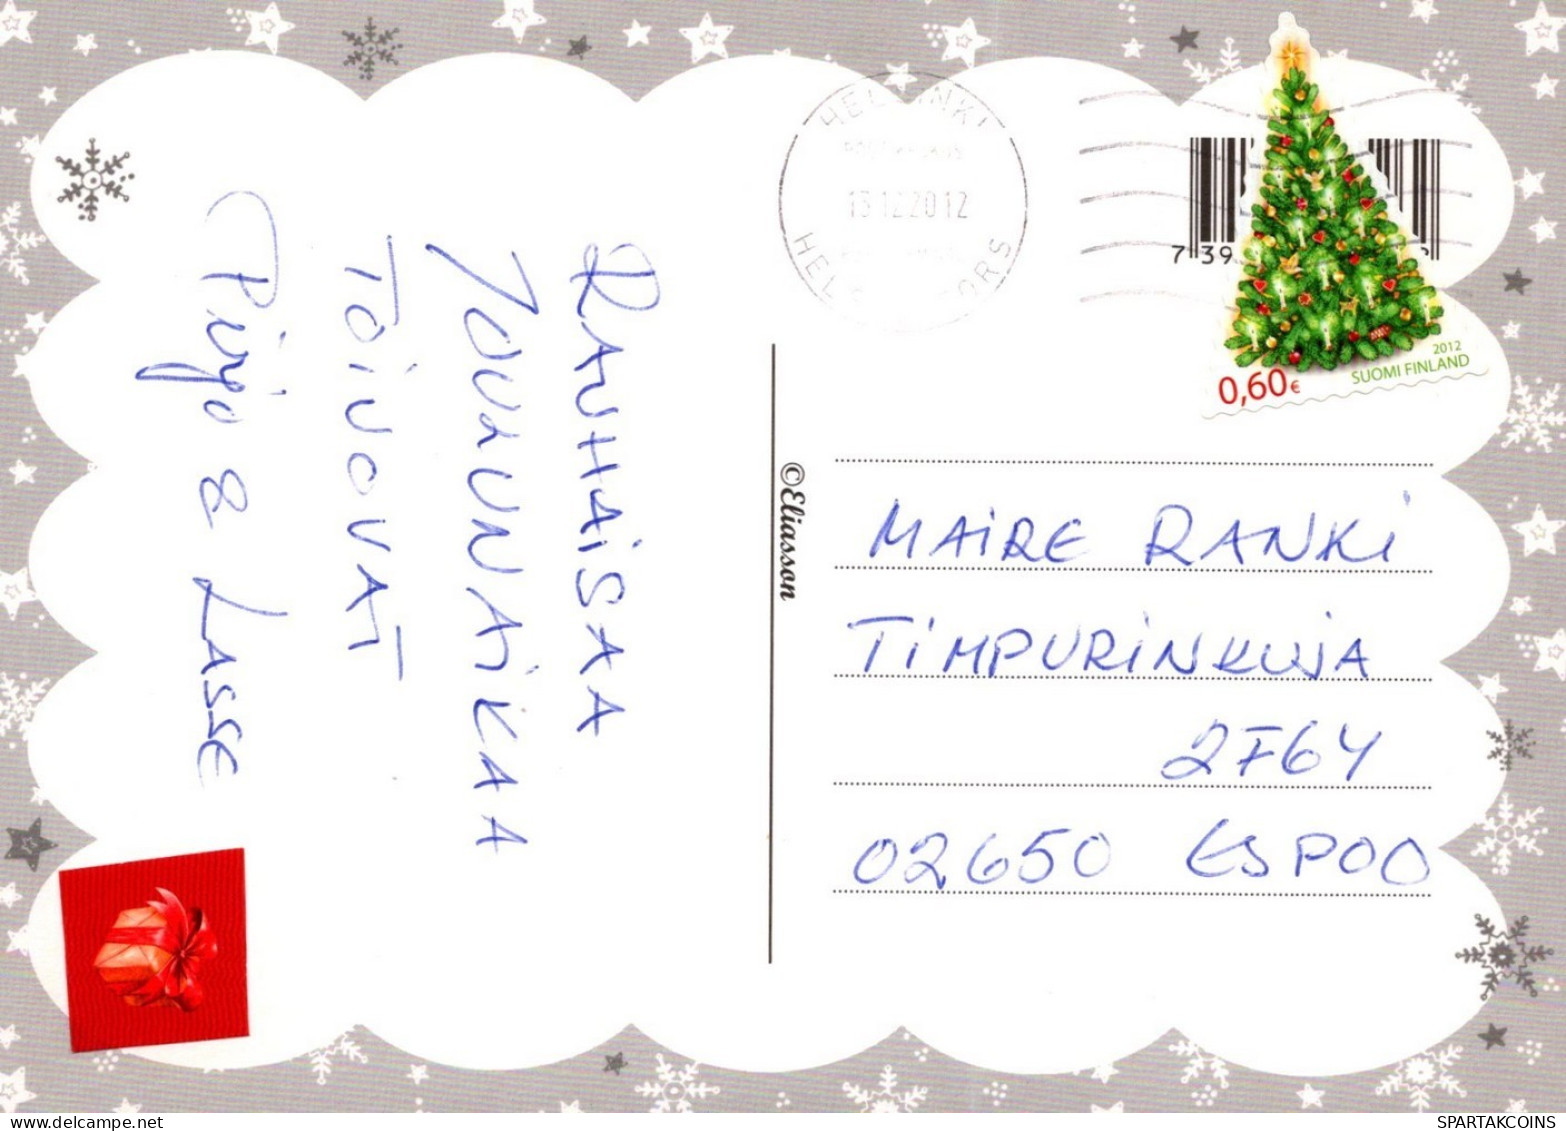 RAUHAISAA
JOULUNAIKAA
TOIVOVAT
Pirjo & LASSE
©Eliasson
HELSINKI
13.12.2012
HELSINGFORS
7 39
2012
SUOMI FINLAND
0,60€
MAIRE RANKI
TIMPURINKUJA
2F64
02650 ESPOO
SPARTAKCOINS